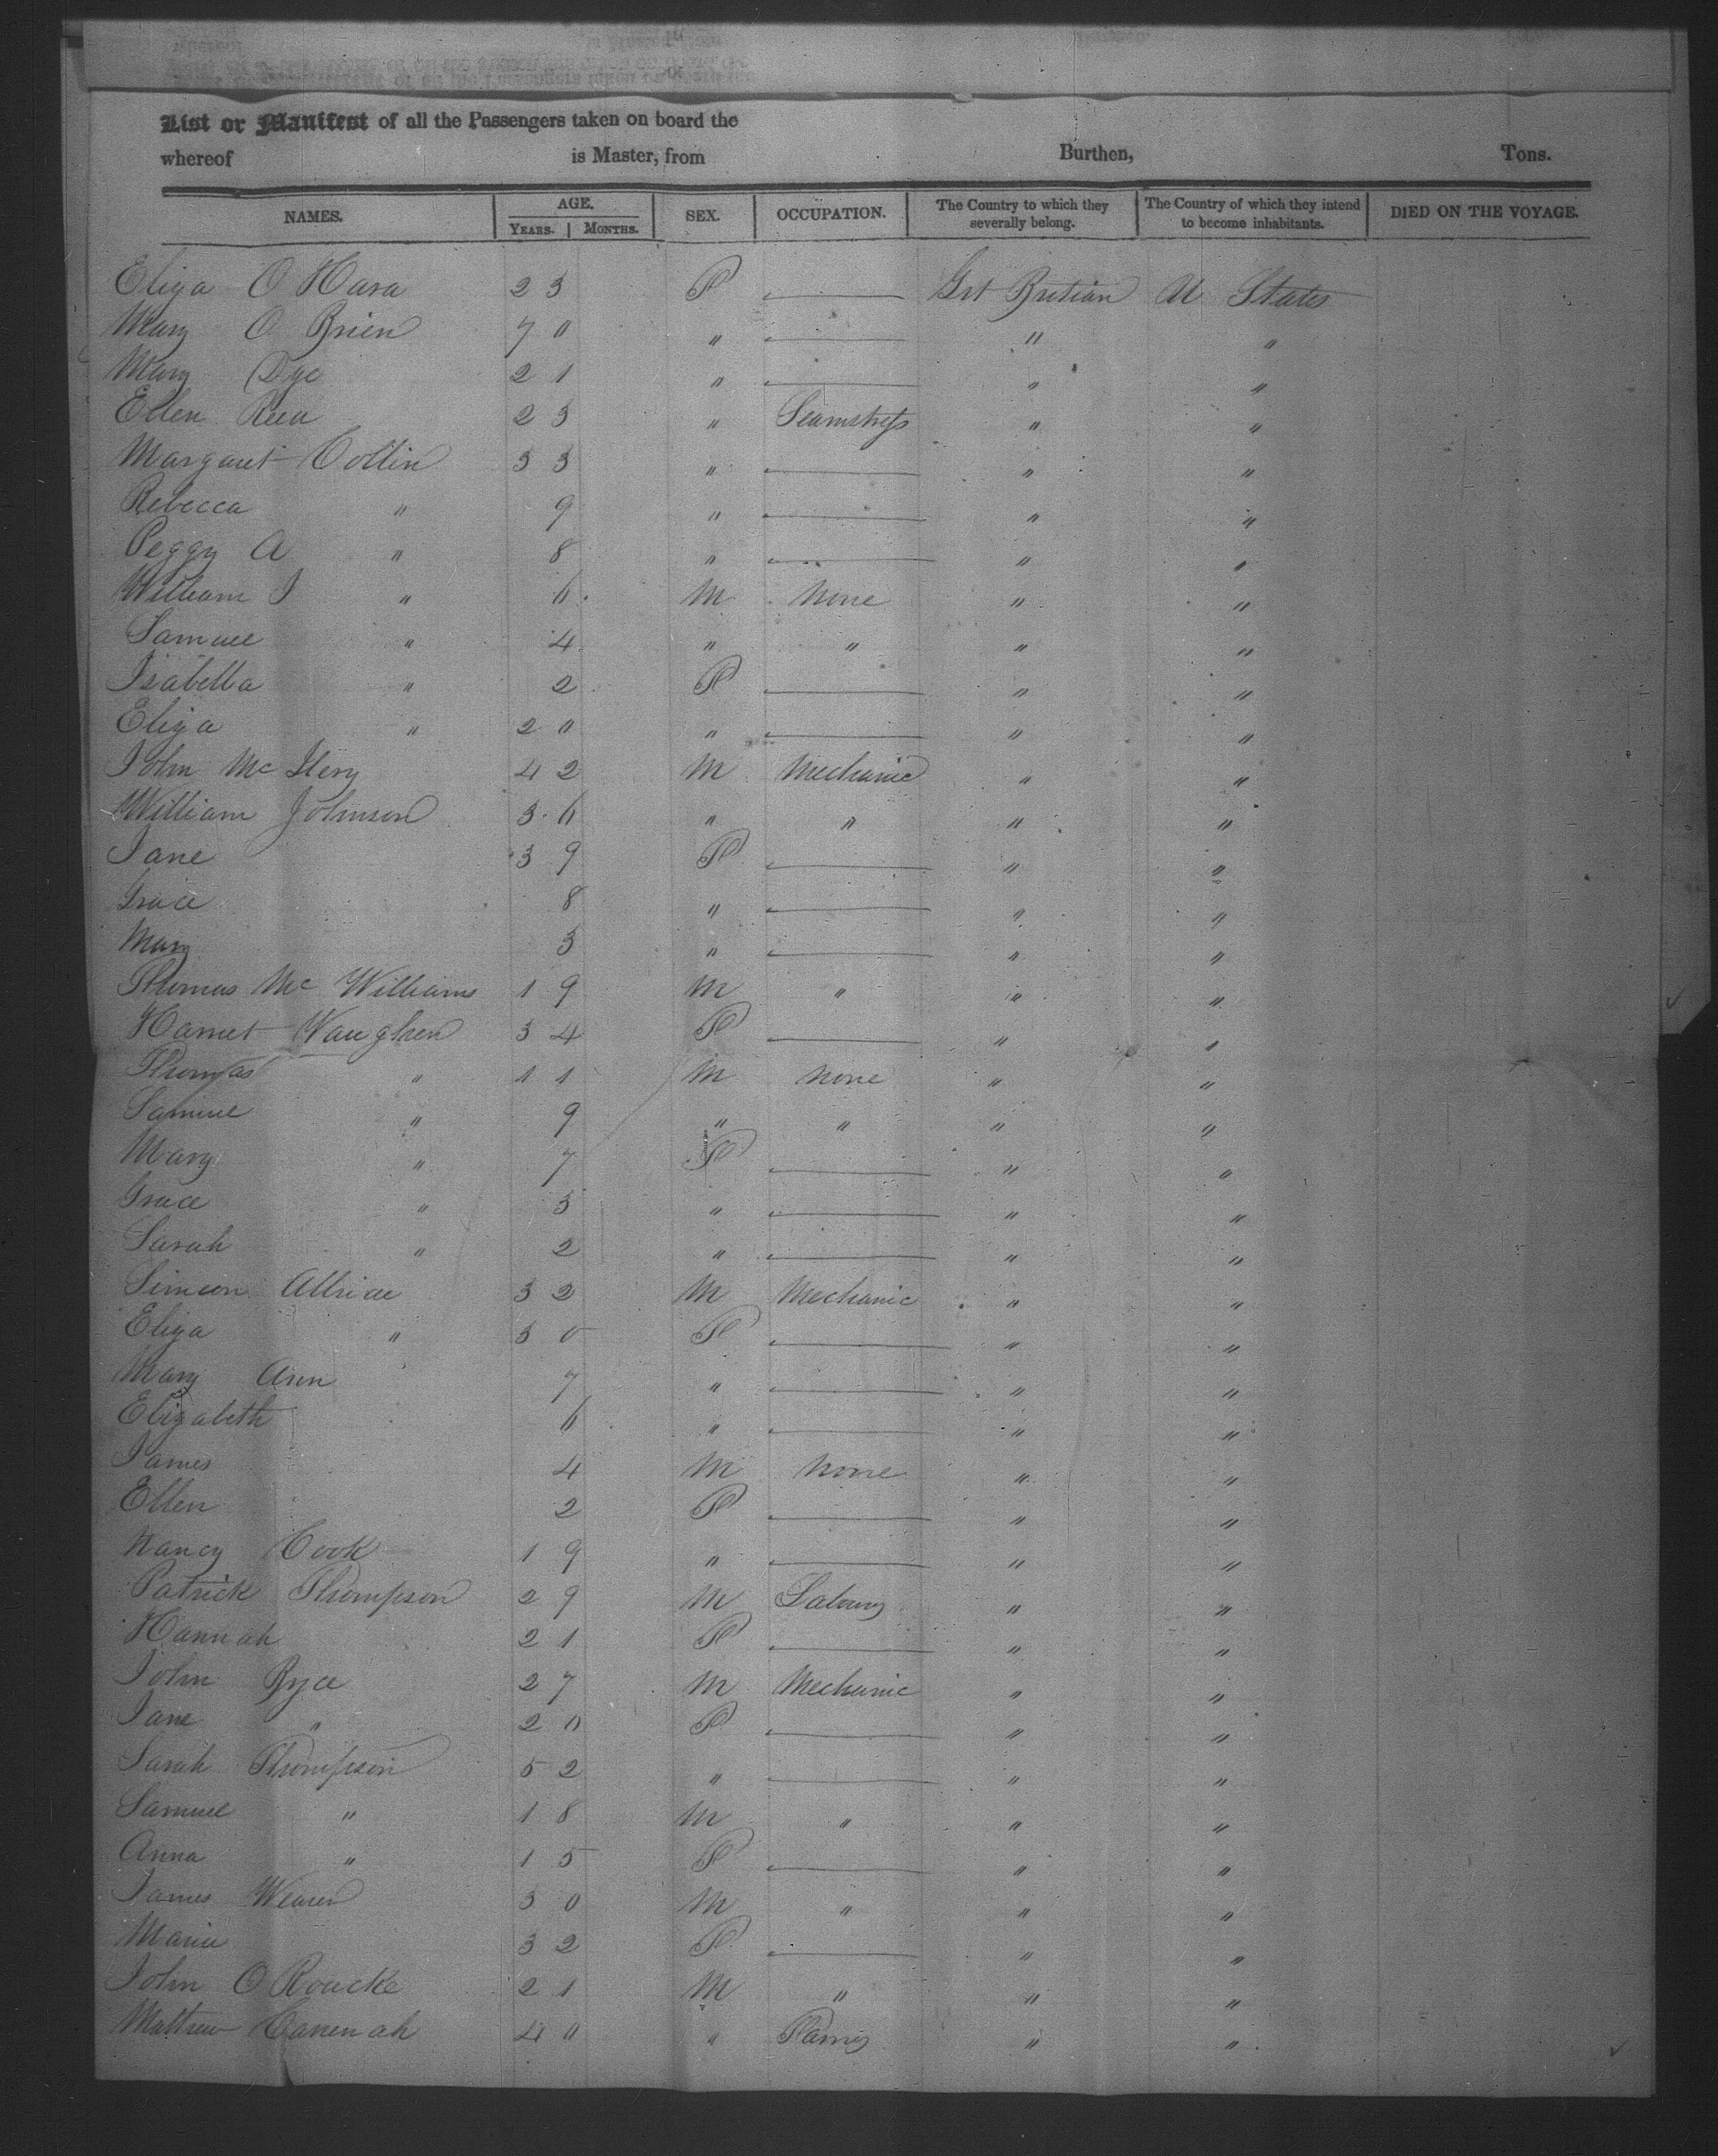 List or Manifest of all the Passengers taken on board the
whereof is Master, from Burthen, Tons.
NAMES. AGE. YEARS. MONTHS. SEX. OCCUPATION. The Country to which they severally belong. The Country of which they intend to become inhabitants. DIED ON THE VOYAGE.
Eliza O Hara 23 F — Grt Britian U States
Mary O Brien 70 " — " "
Mary Dye 21 " — " "
Ellen Rea 23 " Seamstress " "
Margaret Collin 33 " — " "
Rebecca " 9 " — " "
Peggy A " 8 " — " "
William J " 6 M None " "
Samuel " 4 " " " "
Isabella " 2 F — " "
Eliza " 20 " — " "
John Mc 42 M Mechanic " "
William Johnson 36 " " " "
Jane 39 F — " "
Grace 8 " — " "
Mary 3 " — " "
Thomas Mc Williams 19 M " " "
Harriet Vaughen 34 F — " "
Thomas " 11 M None " "
Samuel " 9 " " " "
Mary " 7 F — " "
Grace " 3 " — " "
Sarah " 2 " — " "
Simeon 32 M Mechanic " "
Eliza " 30 F — " "
Mary Ann 7 " — " "
Elizabeth 6 " — " "
James 4 M None " "
Ellen 2 F — " "
Nancy Cook 19 " — " "
Patrick Thompson 29 M Labourer " "
Hannah 21 F — " "
John Ryce 27 M Mechanic " "
Jane " 20 F — " "
Sarah Thompson 52 " — " "
Samuel " 18 M " " "
Anna " 15 F — " "
James Weaver 30 M " " "
Maria 32 F — " "
John O Roucke 21 M " " "
Matthew Cavenah 40 " Farmer " "